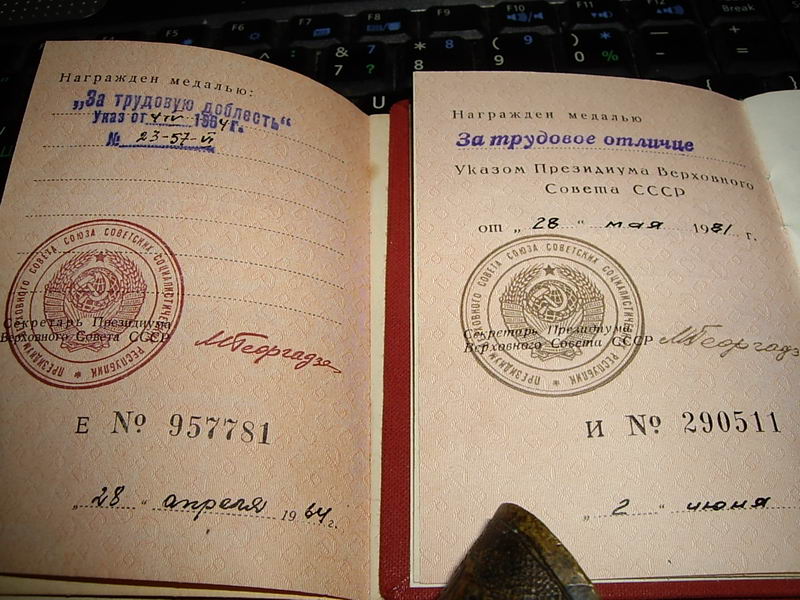 Награжден медалью:
„За трудовую доблесть“
Указ от 4 IV 1964 г.
№ 23-57-VI
ПРЕЗИДИУМ ВЕРХОВНОГО СОВЕТА СОЮЗА СОВЕТСКИХ СОЦИАЛИСТИЧЕСКИХ РЕСПУБЛИК
Секретарь Президиума
Верховного Совета СССР
МГеоргадзе
Е № 957781
„28“ апреля 1964 г.
Награжден медалью
За трудовое отличие
Указом Президиума Верховного
Совета СССР
от „28“ мая 1981 г.
ПРЕЗИДИУМ ВЕРХОВНОГО СОВЕТА СОЮЗА СОВЕТСКИХ СОЦИАЛИСТИЧЕСКИХ РЕСПУБЛИК
Секретарь Президиума
Верховного Совета СССР
МГеоргадзе
И № 290511
„2“ июня
F5
F6
F7
F8
F9
F10
F11
F12
Break
& 7
7 ?
* 8
8
( 9
9
) 0
0 %
U